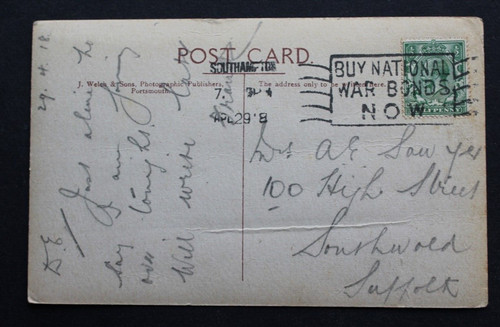 POST CARD.
J. Welch & Sons, Photographic Publishers, Portsmouth.
The address only to be
SOUTHAMPTON
APR 29 18
BUY NATIONAL
WAR BONDS
NOW
29.4.18
D.E/ Just a line to
say I am going
over tonight
Will write
Mrs A E Sawyer
100 High Street
Southwold
Suffolk